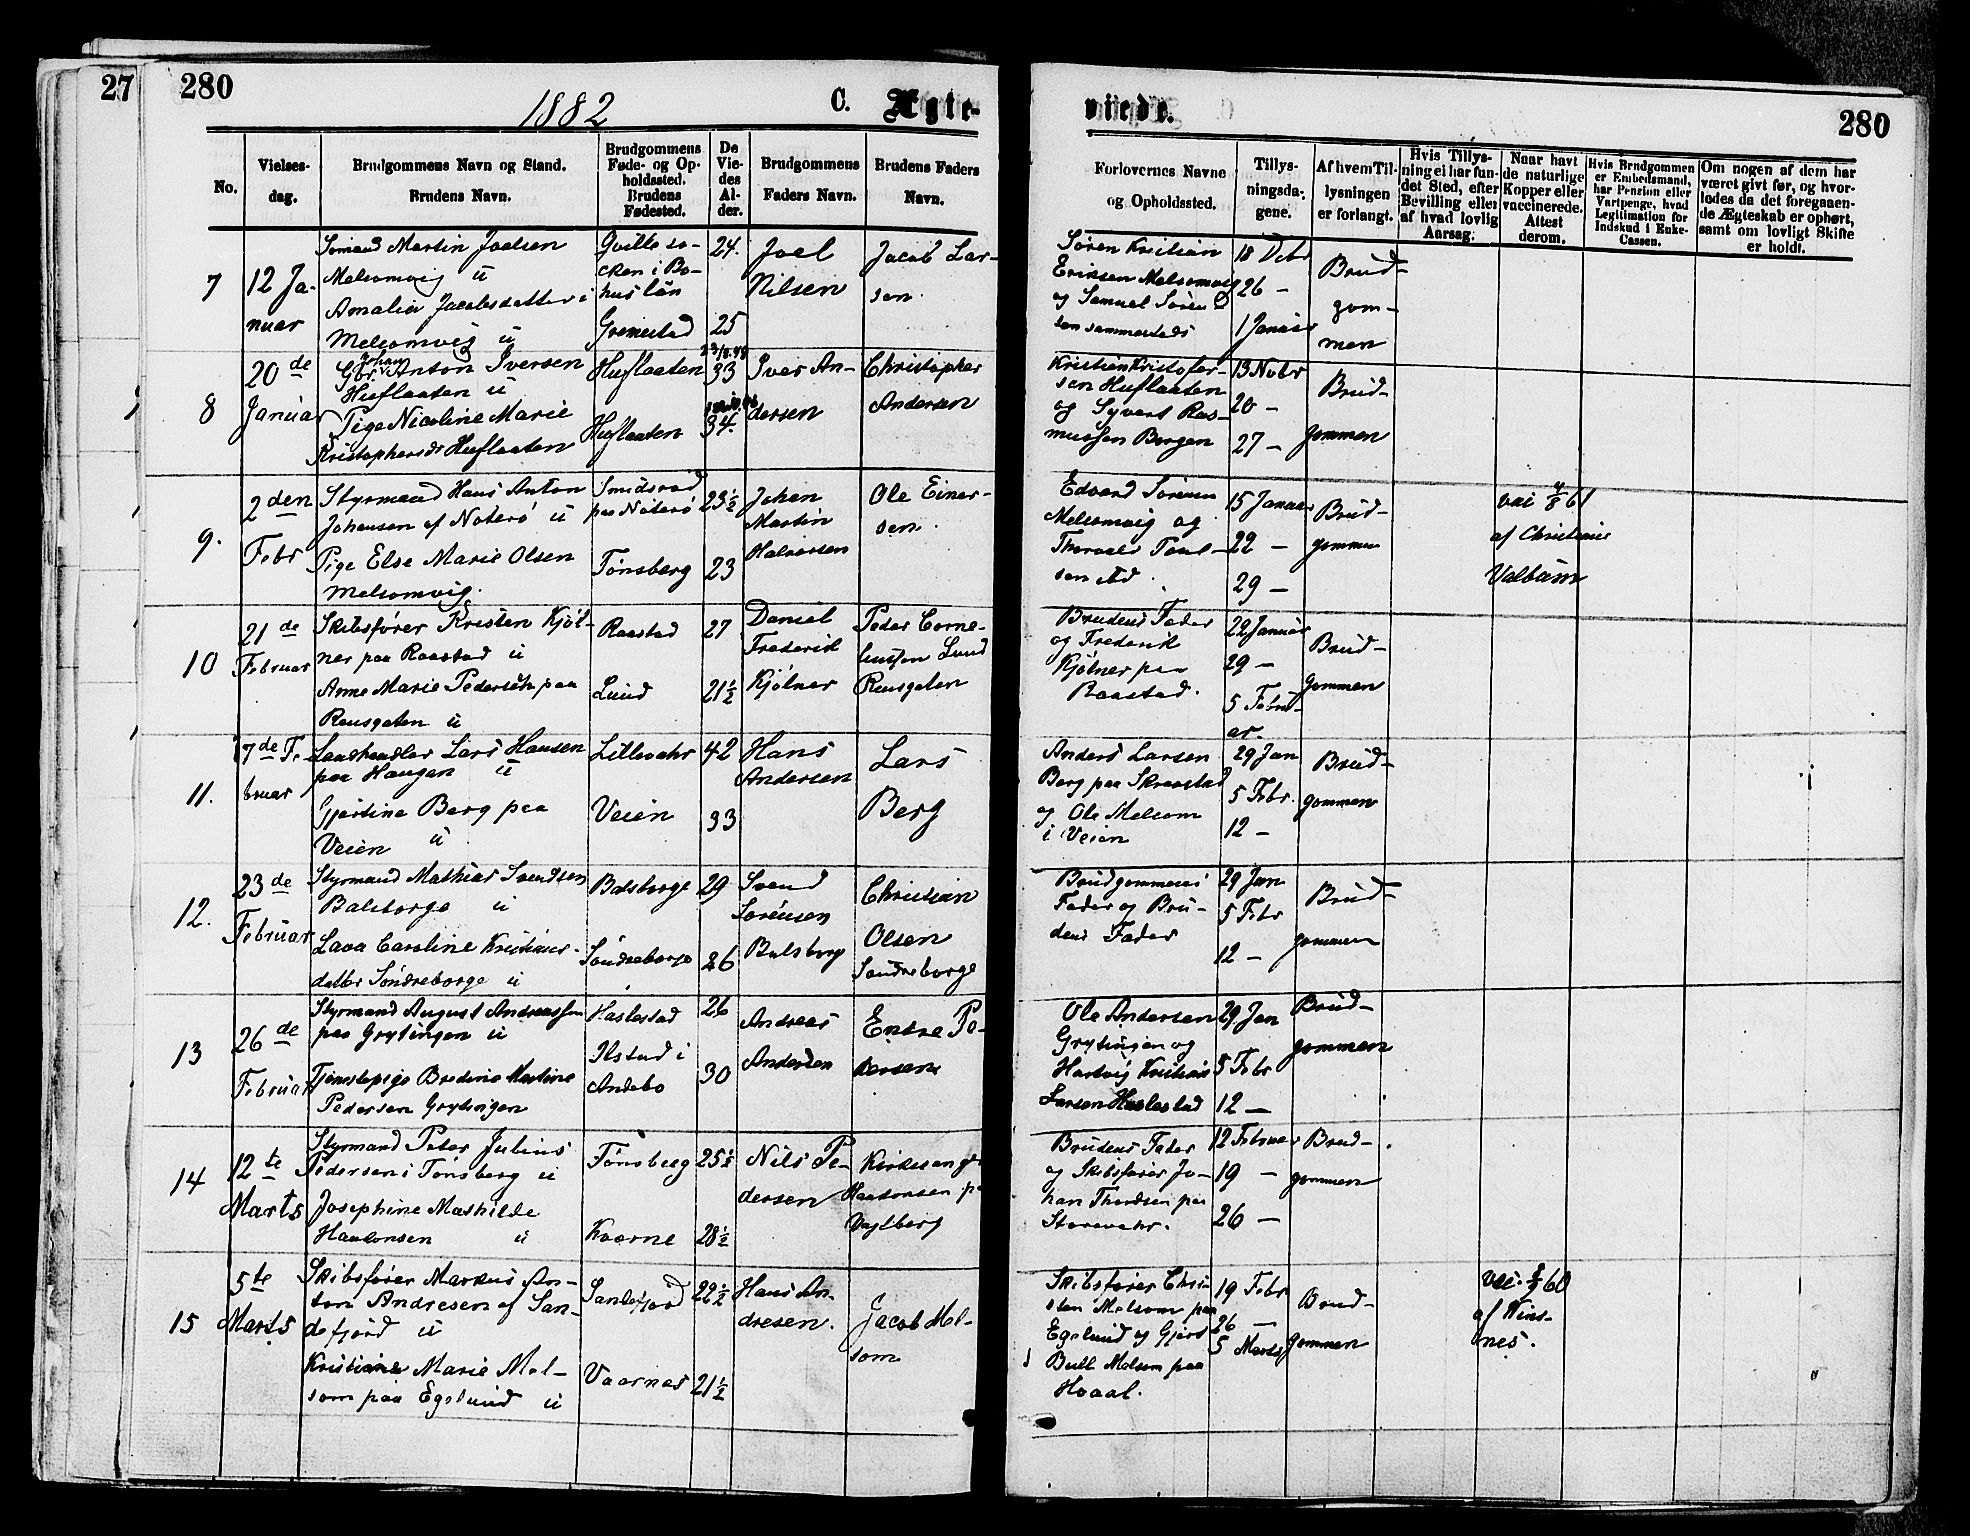 27
280
1882
C.
Ægte-
viede.
280
No.
Vielses-
dag.
Brudgommens Navn og Stand.
Brudens Navn.
Brudgommens
Føde- og Op-
holdssted.
Brudens
Fødested.
De
Vie-
des
Al-
der.
Brudgommens
Faders Navn.
Brudens Faders
Navn.
Forlovernes Navne
og Opholdssted.
Tillys-
ningsda-
gene.
Af hvem Til-
lysningen
er forlangt.
Hvis Tillys-
ning ei har fun-
det Sted, efter
Bevilling eller
af hvad lovlig
Aarsag.
Naar havt
de naturlige
Kopper eller
vaccinerede.
Attest
derom.
Hvis Brudgommen
er Embedsmand,
har Pension eller
Vartpenge, hvad
Legitimation for
Indskud i Enke-
Cassen.
Om nogen af dem har
været givt før, og hvor-
ledes da det foregaaen-
de Ægteskab er ophørt,
samt om lovligt Skifte
er holdt.
7
12 Ja-
nuar
Sømand Martin Joelsen
Melsomvig u
Amalia Jacobsdatter i
Melsomvig u
Qville so-
cken i Bo-
huslän
Grimestad
24.
25
Joel
Nilsen
Jacob Lar-
sen.
Søren Kristian
Eriksen Melsomvig
og Samuel Søren-
sen sammesteds
18 Debr
26 –
1 Januar
Brud-
gom-
men
8
20de
Januar
Gbr. Johan Anton Iversen
Huflaaten u
Pige Nicoline Marie
Kristophersdr Huflaaten
Huflaaten
Huflaaten
33
34.
Iver An-
dersen
Christopher
Andersen
Kristian Kristofer-
sen Huflaaten
og Syvert Ras-
mussen Borgen
13 Nobr
20 –
27 –
Brud-
gommen
9.
2den
Febr
Styrmand Hans Anton
Johansen af Noterö u
Pige Else Marie Olsen
Melsomvig.
Smidsrød
paa Nøterö
Tønsberg
23½
23
Johan
Martin
Halvorsen
Ole Einer-
sen.
Edvard Sørensen
Melsomvig og
Thorvald Paul-
sen
15 Januar
22 –
29 –
Brud-
gommen
61
af Christiane
Valbum
10
21de
Februar
Skibsfører Kristen Kjøl-
ner paa Raastad u
Anne Marie Pedersen paa
Rensgaten u
Raastad
Lund
27
21½
Daniel
Frederik
Kjölner
Peder Corne-
liussen Lund
Rensgaten
Brudens Fader
og Frederik
Kjölner paa
Raastad.
22 Januar
29 –
5 Febru-
ar
Brud-
gommen
11.
17de Fe-
bruar
Landhandler Lars Hansen
paa Haugen u
Gjertine Berg paa
Veien u
Lillevahr
Veien
42
33
Hans
Andersen
Lars
Berg
Anders Larsen
Berg paa Skraastad
og Ole Melsom
i Veien
29 Jan
5 Febr.
12 –
Brud-
gommen
12.
23de
Februar
Styrmand Mathias Svendsen
Balsborge u
Lava Caroline Kristians-
datter Söndreborge u
Balsborge
Söndreborge
29
26
Svend
Sorensen
Balsborg
Christian
Olsen
Sondreborge
Brudgommens
Fader og Bru-
dens Fader
29 Jan
5 Febr
12 –
Brud-
gommen
13
26de
Februar
Styrmand August Andreassen
paa Grytingen u
Tjenestepige Bredine Martine
Pedersen Grytingen
Haslestad
Ilstad i
Andebo
26
30
Andreas
Andersen
Endre Pe-
dersen
Ole Andersen
Grytingen og
Hartvig Kristian
Larsen Haslestad
29 Jan
5 Febr
12 –
Brud-
gommen
14
12te
Marts
Styrmand Peter Julius
Pedersen i Tönsberg u
Josephine Mathilde
Haakonsen u
Tønsberg
Kværne
25½
28½
Nils Pe-
dersen
Kirkesanger
Haakonsen p
Vajlberg
Brudens Fader
og Skibsfører Jo-
han Thordsen paa
Storevahr.
12 Februar
19 –
26 –
Brud-
gommen
15
5te
Marts
Skibsfører Markus An-
ton Andresen af San-
defjord u
Kristiane Marie Mel-
som paa Egelund u
Sandefjord
Vaarnes
22½
21½
Hans An-
dresen.
Jacob Mel-
som
Skibsfører Chri-
sten Melsom paa
Egelund og Gjert
Bull Melsom paa
Hvaal.
19 Febr
26 –
5 Marts
Brud-
gommen
60
af Wins-
nes.